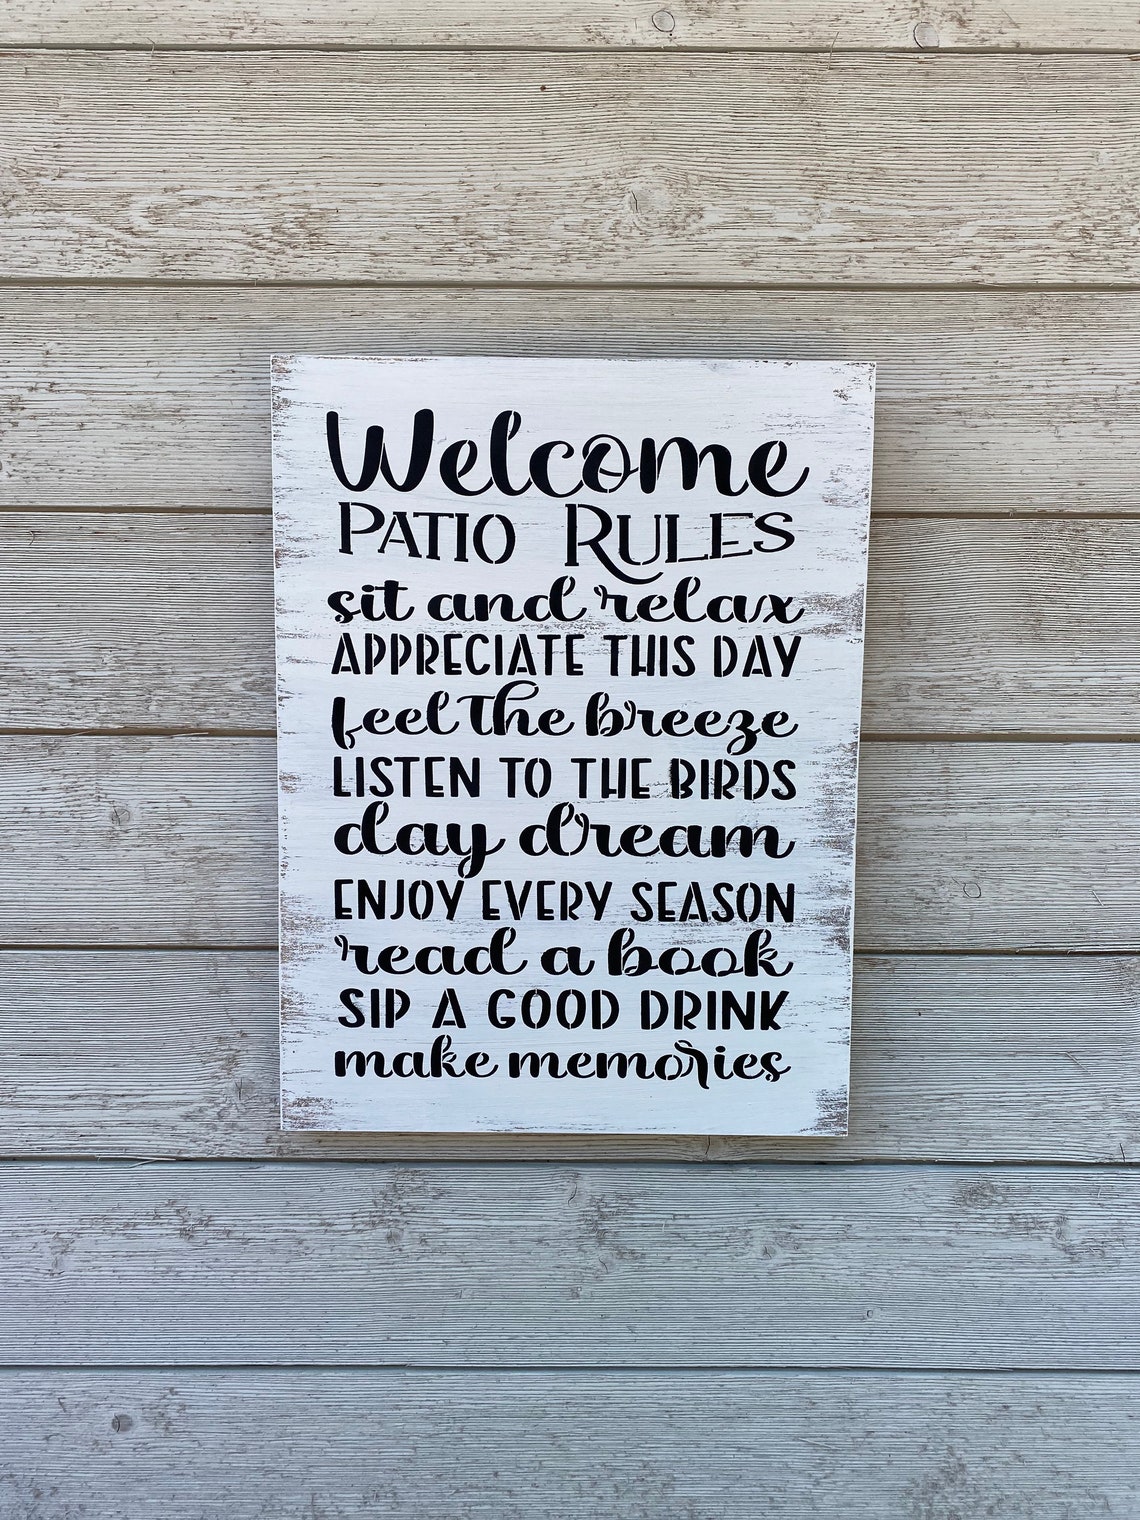 Welcome
PATIO RULES
sit and relax
APPRECIATE THIS DAY
feel the breeze
LISTEN TO THE BIRDS
day dream
ENJOY EVERY SEASON
read a book
SIP A GOOD DRINK
make memories